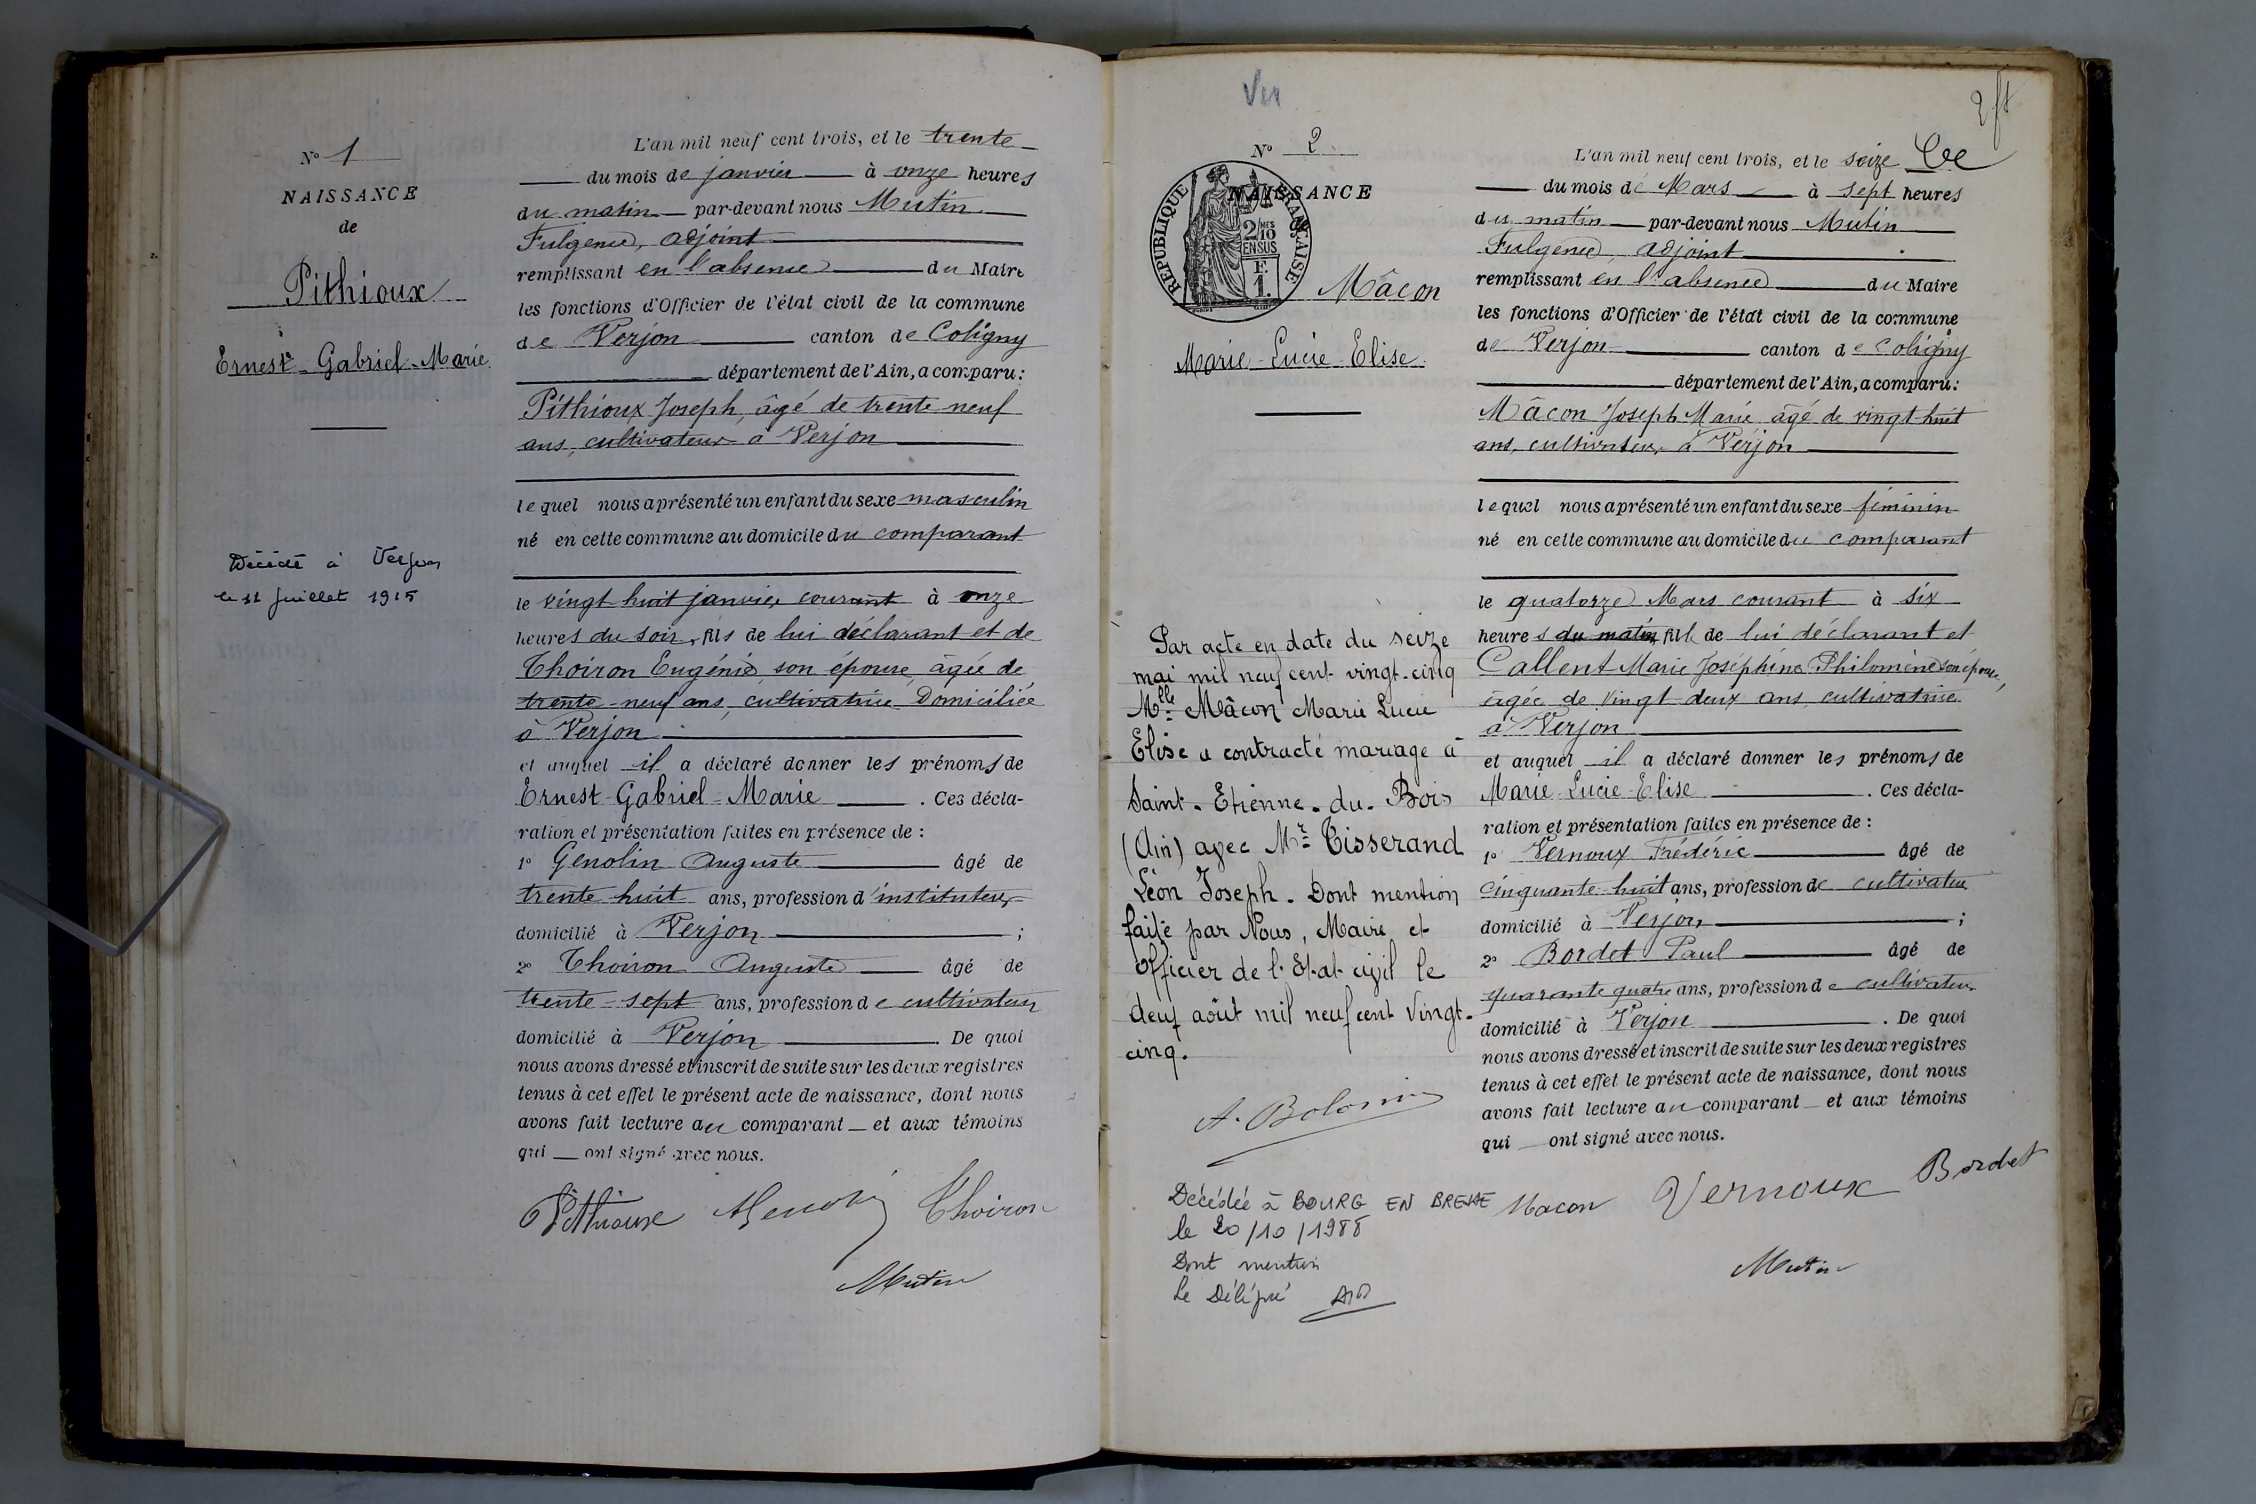 N° 1
NAISSANCE
de
Pithioux
Ernest-Gabriel-Marie
Décédé à Verjon
le 11 juillet 1915
L'an mil neuf cent trois, et le trente
du mois de janvier à onze heures
du matin par-devant nous Mutin
Fulgence, adjoint
remplissant en l'absence du Maire
les fonctions d'Officier de l'état civil de la commune
de Verjon canton de Coligny
département de l'Ain, a comparu:
Pithioux Joseph, âgé de trente neuf
ans, cultivateur à Verjon
lequel nous a présenté un enfant du sexe masculin
né en cette commune au domicile du comparant
le vingt huit janvier courant à onze
heures du soir, fils de lui déclarant et de
Thoiron Eugénie, son épouse, âgée de
trente-neuf ans, cultivatrice Domiciliée
à Verjon
et auquel il a déclaré donner les prénoms de
Ernest-Gabriel-Marie . Ces décla-
ration et présentation faites en présence de :
1° Genolin Auguste âgé de
trente huit ans, profession d'instituteur
domicilié à Verjon ;
2° Thoiron Auguste âgé de
trente-sept ans, profession de cultivateur
domicilié à Verjon . De quoi
nous avons dressé et inscrit de suite sur les deux registres
tenus à cet effet le présent acte de naissance, dont nous
avons fait lecture au comparant et aux témoins
qui ont signé avec nous.
Pithioux Genolin Thoiron
Mutin
2
N° 2
NAISSANCE
RÉPUBLIQUE FRANÇAISE
2/10
EN SUS
F.
1.
Mâcon
Marie-Lucie-Elise
Par acte en date du seize
mai mil neuf cent vingt-cinq
Mlle Mâcon Marie Lucie
Elise a contracté mariage à
Saint-Etienne-du-Bois
(Ain) avec Mr Tisserand
Léon Joseph. Dont mention
faite par Nous, Maire et
officier de l'Etat civil le
deux août mil neuf cent vingt-
cinq.
Décédée à BOURG EN BRESSE
le 20/10/1988
Dont mention
Le Délégué
L'an mil neuf cent trois, et le seize
du mois de Mars à sept heures
du matin par-devant nous Mutin
Fulgence, adjoint
remplissant en l'absence du Maire
les fonctions d'Officier de l'état civil de la commune
de Verjon canton de Coligny
département de l'Ain, a comparu:
Mâcon Joseph Marie âgé de vingt huit
ans, cultivateur à Verjon
lequel nous a présenté un enfant du sexe féminin
né en cette commune au domicile du comparant
le quatorze Mars courant à six
heures du matin, fille de lui déclarant et
Callent Marie Joséphine Philomène son épouse,
âgée de vingt deux ans, cultivatrice
à Verjon
et auquel il a déclaré donner les prénoms de
Marie-Lucie-Elise . Ces décla-
ration et présentation faites en présence de :
1° Vernoux Frédéric âgé de
cinquante-huit ans, profession de cultivateur
domicilié à Verjon ;
2° Bordet Paul âgé de
quarante quatre ans, profession de cultivateur
domicilié à Verjon . De quoi
nous avons dressé et inscrit de suite sur les deux registres
tenus à cet effet le présent acte de naissance, dont nous
avons fait lecture au comparant et aux témoins
qui ont signé avec nous.
Macon Vernoux Bordet
Mutin